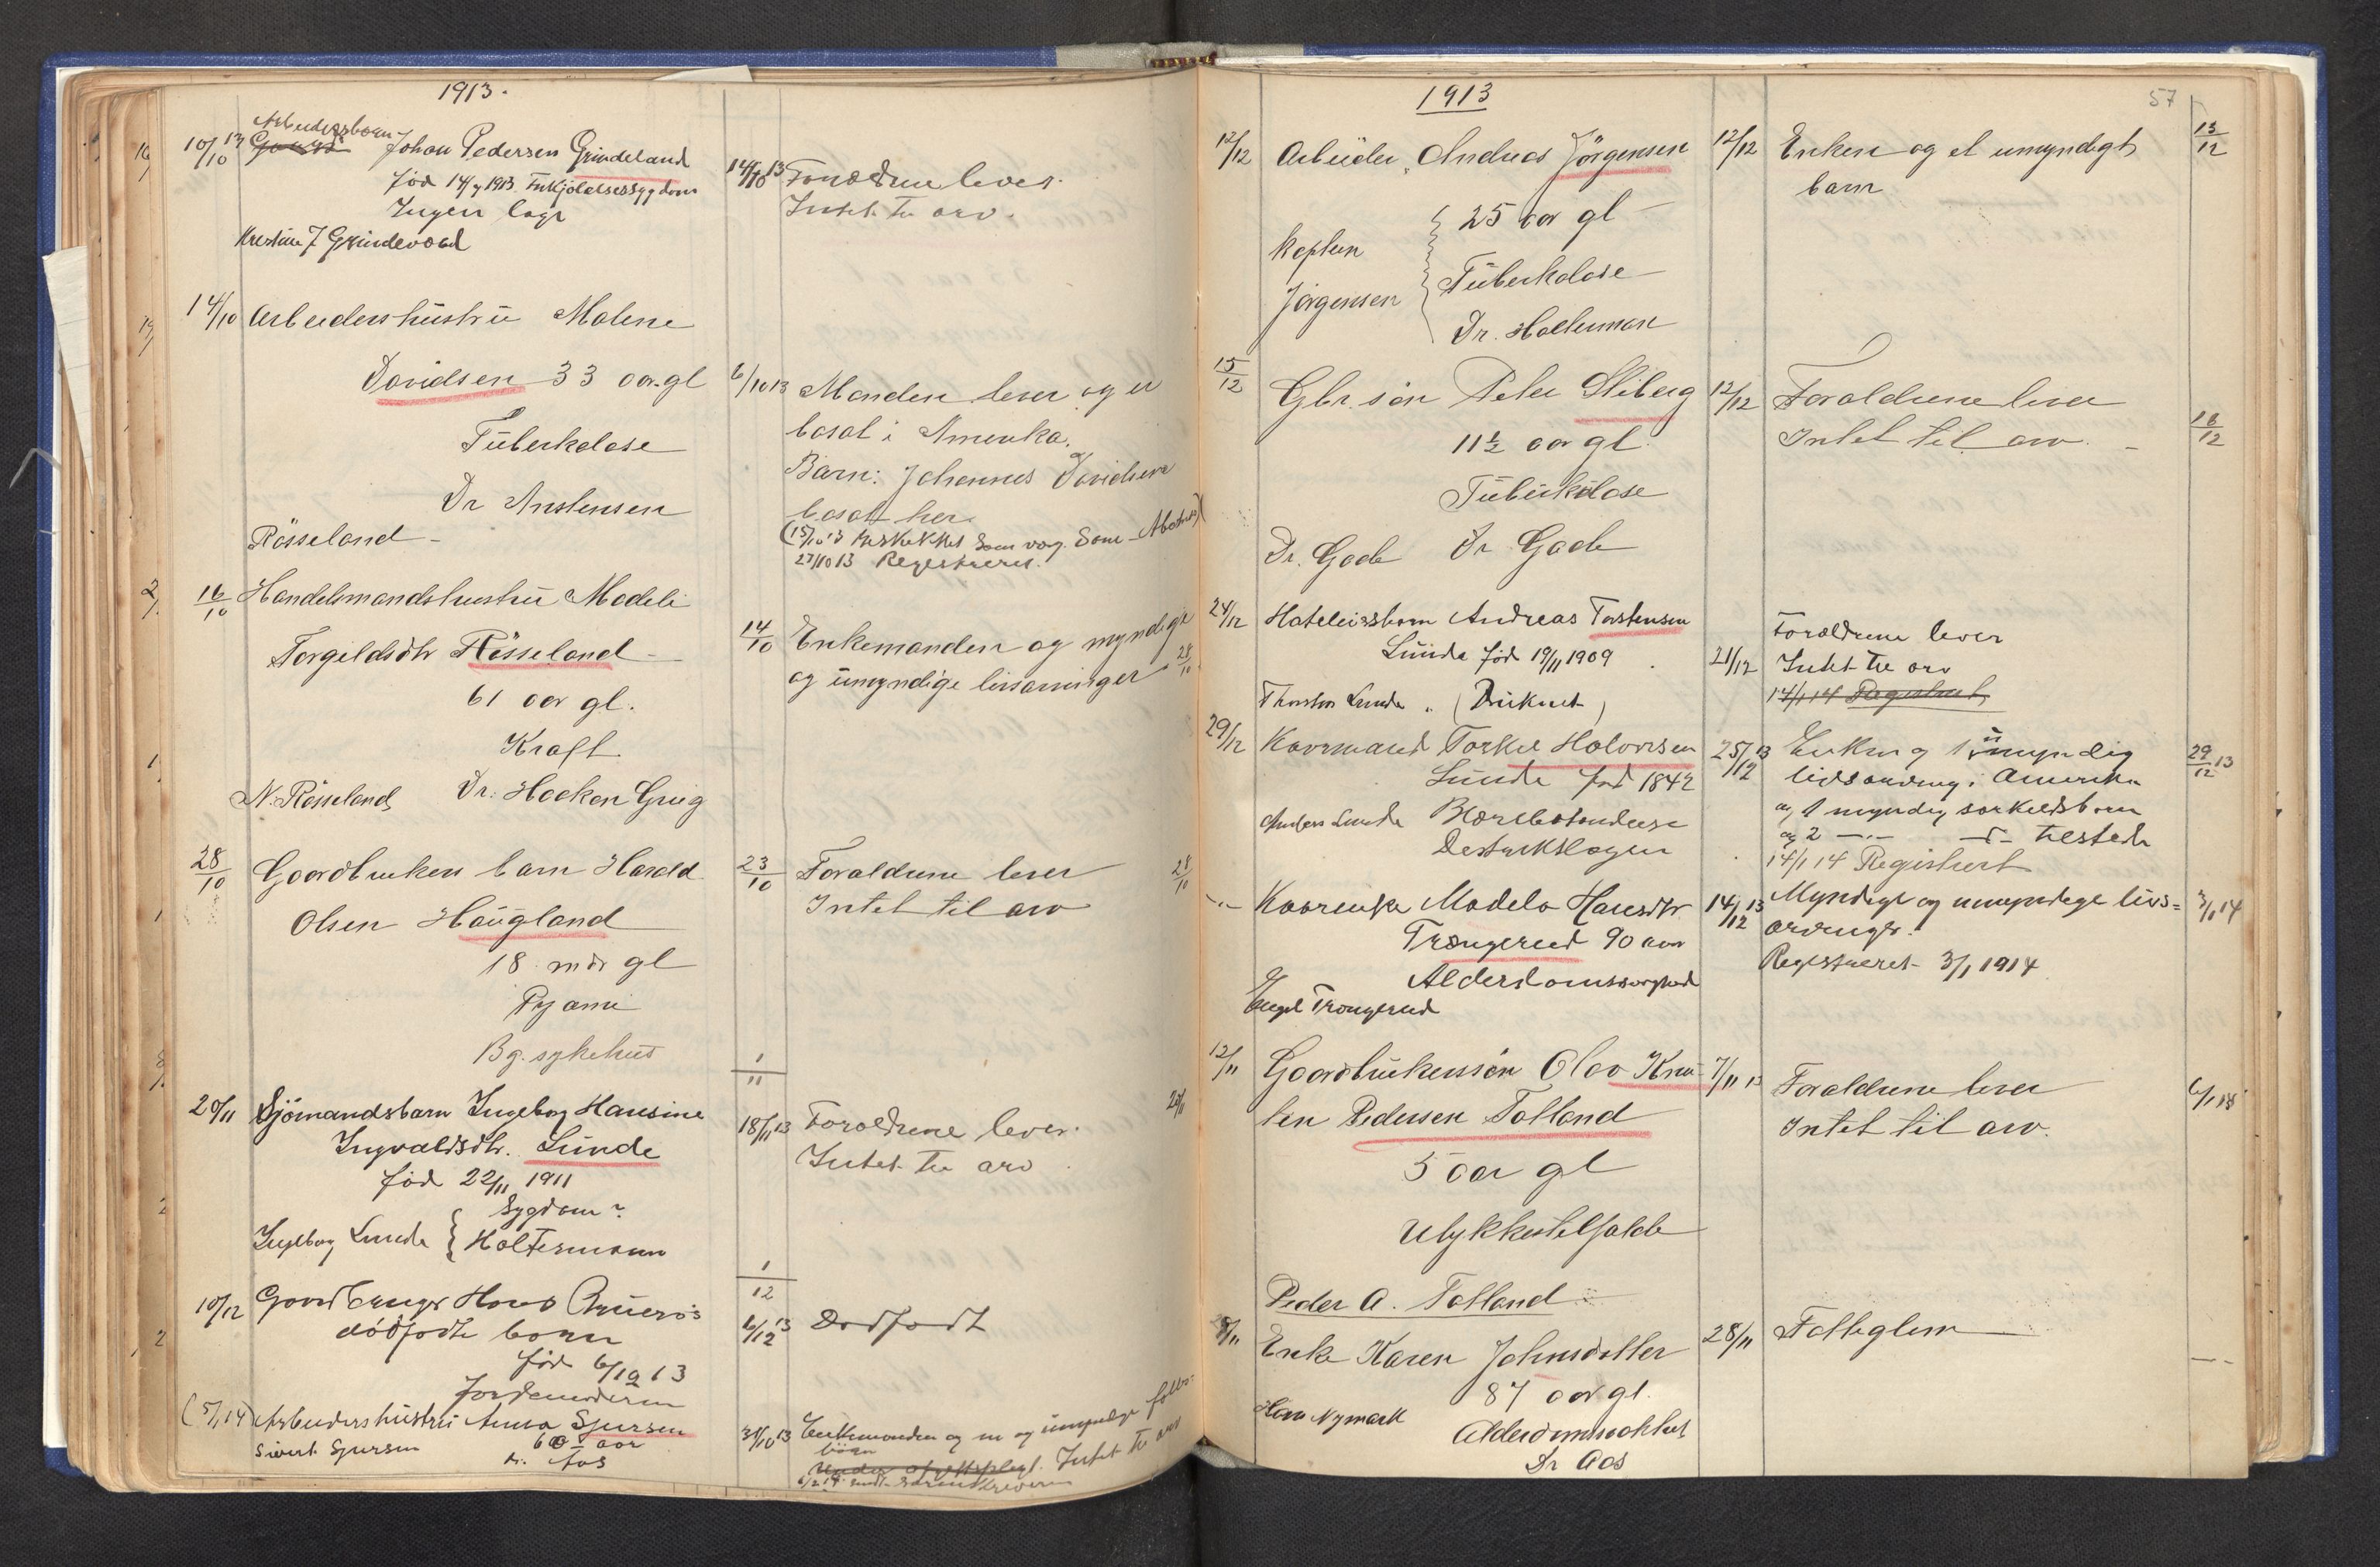 1913.
10/10 13 Arbeidersbarn Johan Pedersen Grindeland
14/10 13 Forældrene lever.
Intet til arv.
fød 14/7 1913. Forkjølelsessygdom
Ingen læge
14/10 Arbeidershustru Malene
Davidsen 33 aar gl
Tuberkolose
Dr Anstensen
Rösseland
6/10 13 Manden lever og er
bosat i Amerika.
Barn: Johannes Davidsen
bosat her.
27/10 13 Registreret.
16/10 Handelsmandshustru Madeli
Torgeldsdtr Rösseland
61 aar gl.
Kræft
N. Rösseland Dr. Haakon Grieg
14/10 Enkemanden og myndige
og umyndige livsarvinger 28/10
28/10 Gaardbrukers barn Harald
Olsen Haugland
18 mdr gl
Pyæmi
Bg. sykehus
23/10 Forældrene lever
Intet til arv
28/10
1/11
20/11 Sjömandsbarn Ingeborg Hansine
Ingvaldsdtr. Lunde
fød 22/11 1911
Sygdom?
Ingeborg Lunde Holtermann
18/11 13 Forældrene lever.
Intet til arv
1/12
10/12 Gaardbruger Hans
dödfödte barn
fød 6/12 13
Jordemoderen
6/12 13 Dödfödt
(5/1 14) Arbeidershustru Anna Sjursen
Sivert Sjursen
Dr. Aas
31/10 13 Enkemanden og m og umyndige fælles
börn
Intet til arv
1913
57
12/12 Arbeider Andreas Jörgensen
25 aar gl
Tuberkolose
Dr. Holterman
Jörgensen
12/12 Enken og et umyndigt
barn
13/12
15/12 Gbr. sön Peter Sliberg
11½ aar gl.
Tuberkolose
Dr. Gade Dr. Gade
12/12 Forældrene lever
Intet til arv.
16/12
24/12 Andreas Torstensen
Lunde fød 19/11 1909
(Druknet)
21/12 Forældrene lever
Intet til arv
14/1 14 Registrert
29/12 Kaarmand Torkel Halvorsen
Lunde fød 1842
Blærebetændelse
Distrikslægen
25/12 13 Enken og 1 umyndig
livsarving i Amerika
og 1 myndig særkuldsbarn
og 2 —"— tilstede
14/1 14 Registrert
29/12 13
—"— Kaarenke Madela Hansdtr
Trængereid 90 aar
Alderdomssvaghed
Engel Trængereid
14/12 13 Myndige og umyndige livs=
arvinger.
Registreret 3/1 1914
3/1 14
12/11 Gaardbrukerssön Olav Knu-
ten Pedersen Totland
5 aar gl
Ulykkestilfælde
Peder A. Totland
7/11 13 Forældrene lever
Intet til arv.
Enke Karen Johnsdatter
87 aar gl.
Nymark
Dr Aas
28/11 Fattiglem